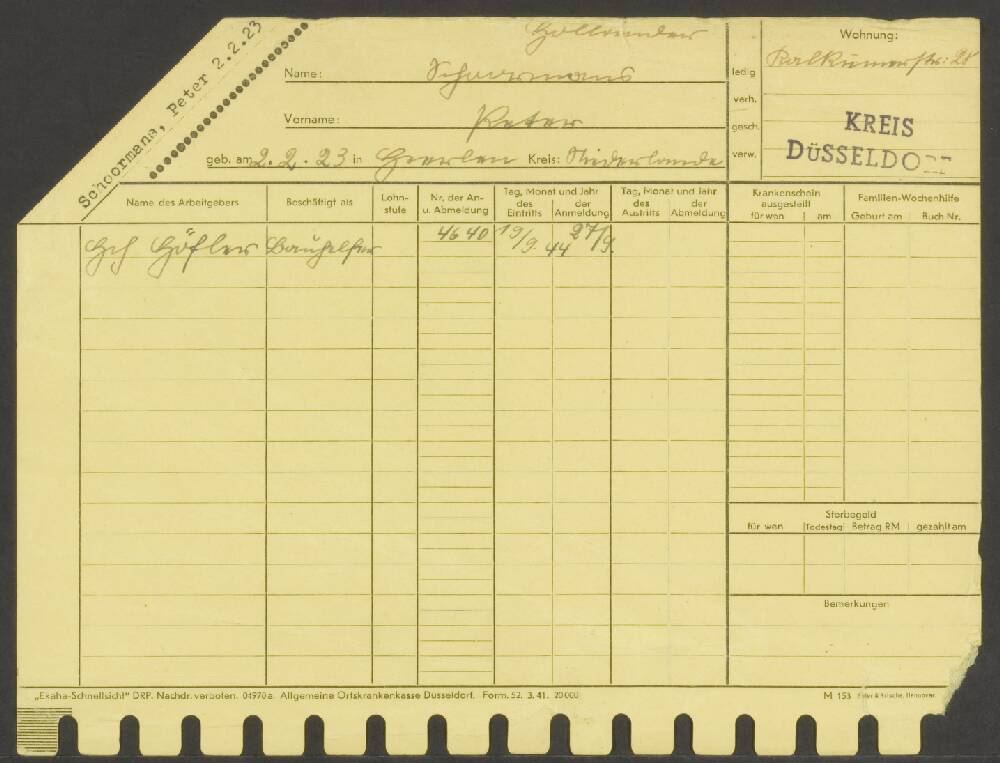 Schoormans, Peter 2.2.23
Holländer
Name: Schoormans
Vorname: Peter
geb. am 2.2.23 in Heerlen Kreis: Niederlande
ledig
verh.
gesch.
verw.
Wohnung:
Kalkumerstr: 28
KREIS
DÜSSELDO
Name des Arbeitgebers
Beschäftigt als
Lohn-
stufe
Nr. der An-
u. Abmeldung
Tag, Monat und Jahr
des Eintritts
der Anmeldung
Tag, Monat und Jahr
des Austritts
der Abmeldung
Krankenschein
ausgestellt
für wen
am
Familien-Wochenhilfe
Geburt am
Buch Nr.
Hch Höfler Bauhelfer 4640 19/9. 44 27/9.
Sterbegeld
für wen
Todestag
Betrag RM
gezahlt am
Bemerkungen
„Ekaha-Schnellsicht" DRP. Nachdr. verboten. 04970a. Allgemeine Ortskrankenkasse Düsseldorf. Form. 52. 3. 41. 20000
M 153